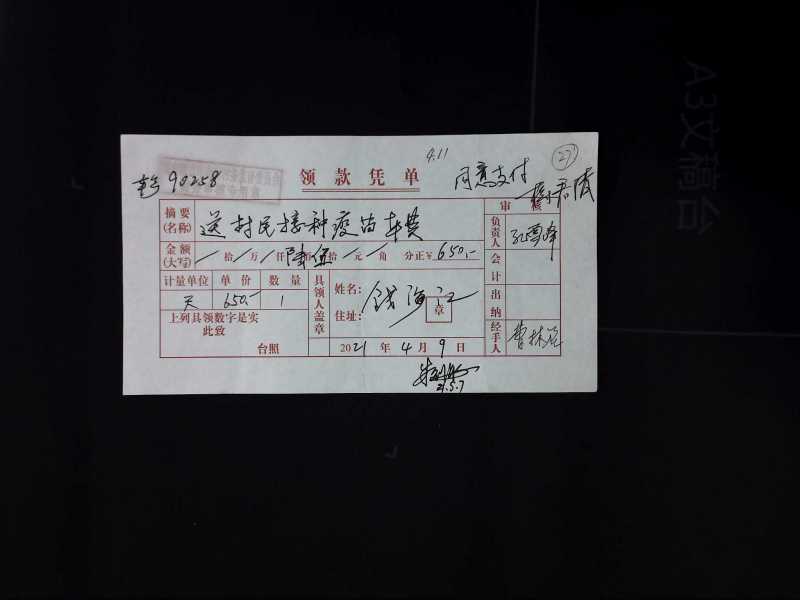 A3文稿台
4.11
27
90258
领款凭单
同意支付
审核
摘要(名称) 送村民接种疫苗车费
负责人
金额(大写) 拾 万 仟 陆佰 伍拾 元 角 分正¥ 650.-
会计
计量单位 单价 数量
天 650.- 1
具领人盖章
姓名: 钱海江
住址:
章
出纳
上列具领数字是实
此致
台照
2021年4月9日
经手人 曹林
21.5.7